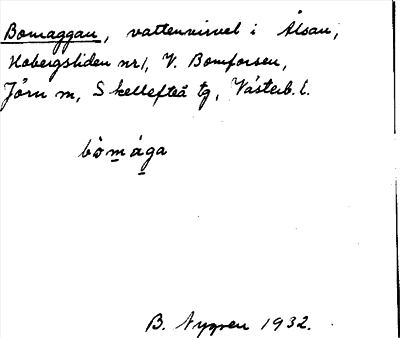 Bomaggan, vattenvirvel i Ålsan,
Hobergsliden nr 1, V. Bomforsen,
Jörn sn, Skellefteå tg, Västerb. l.
bòmága
B. Nygren 1932.